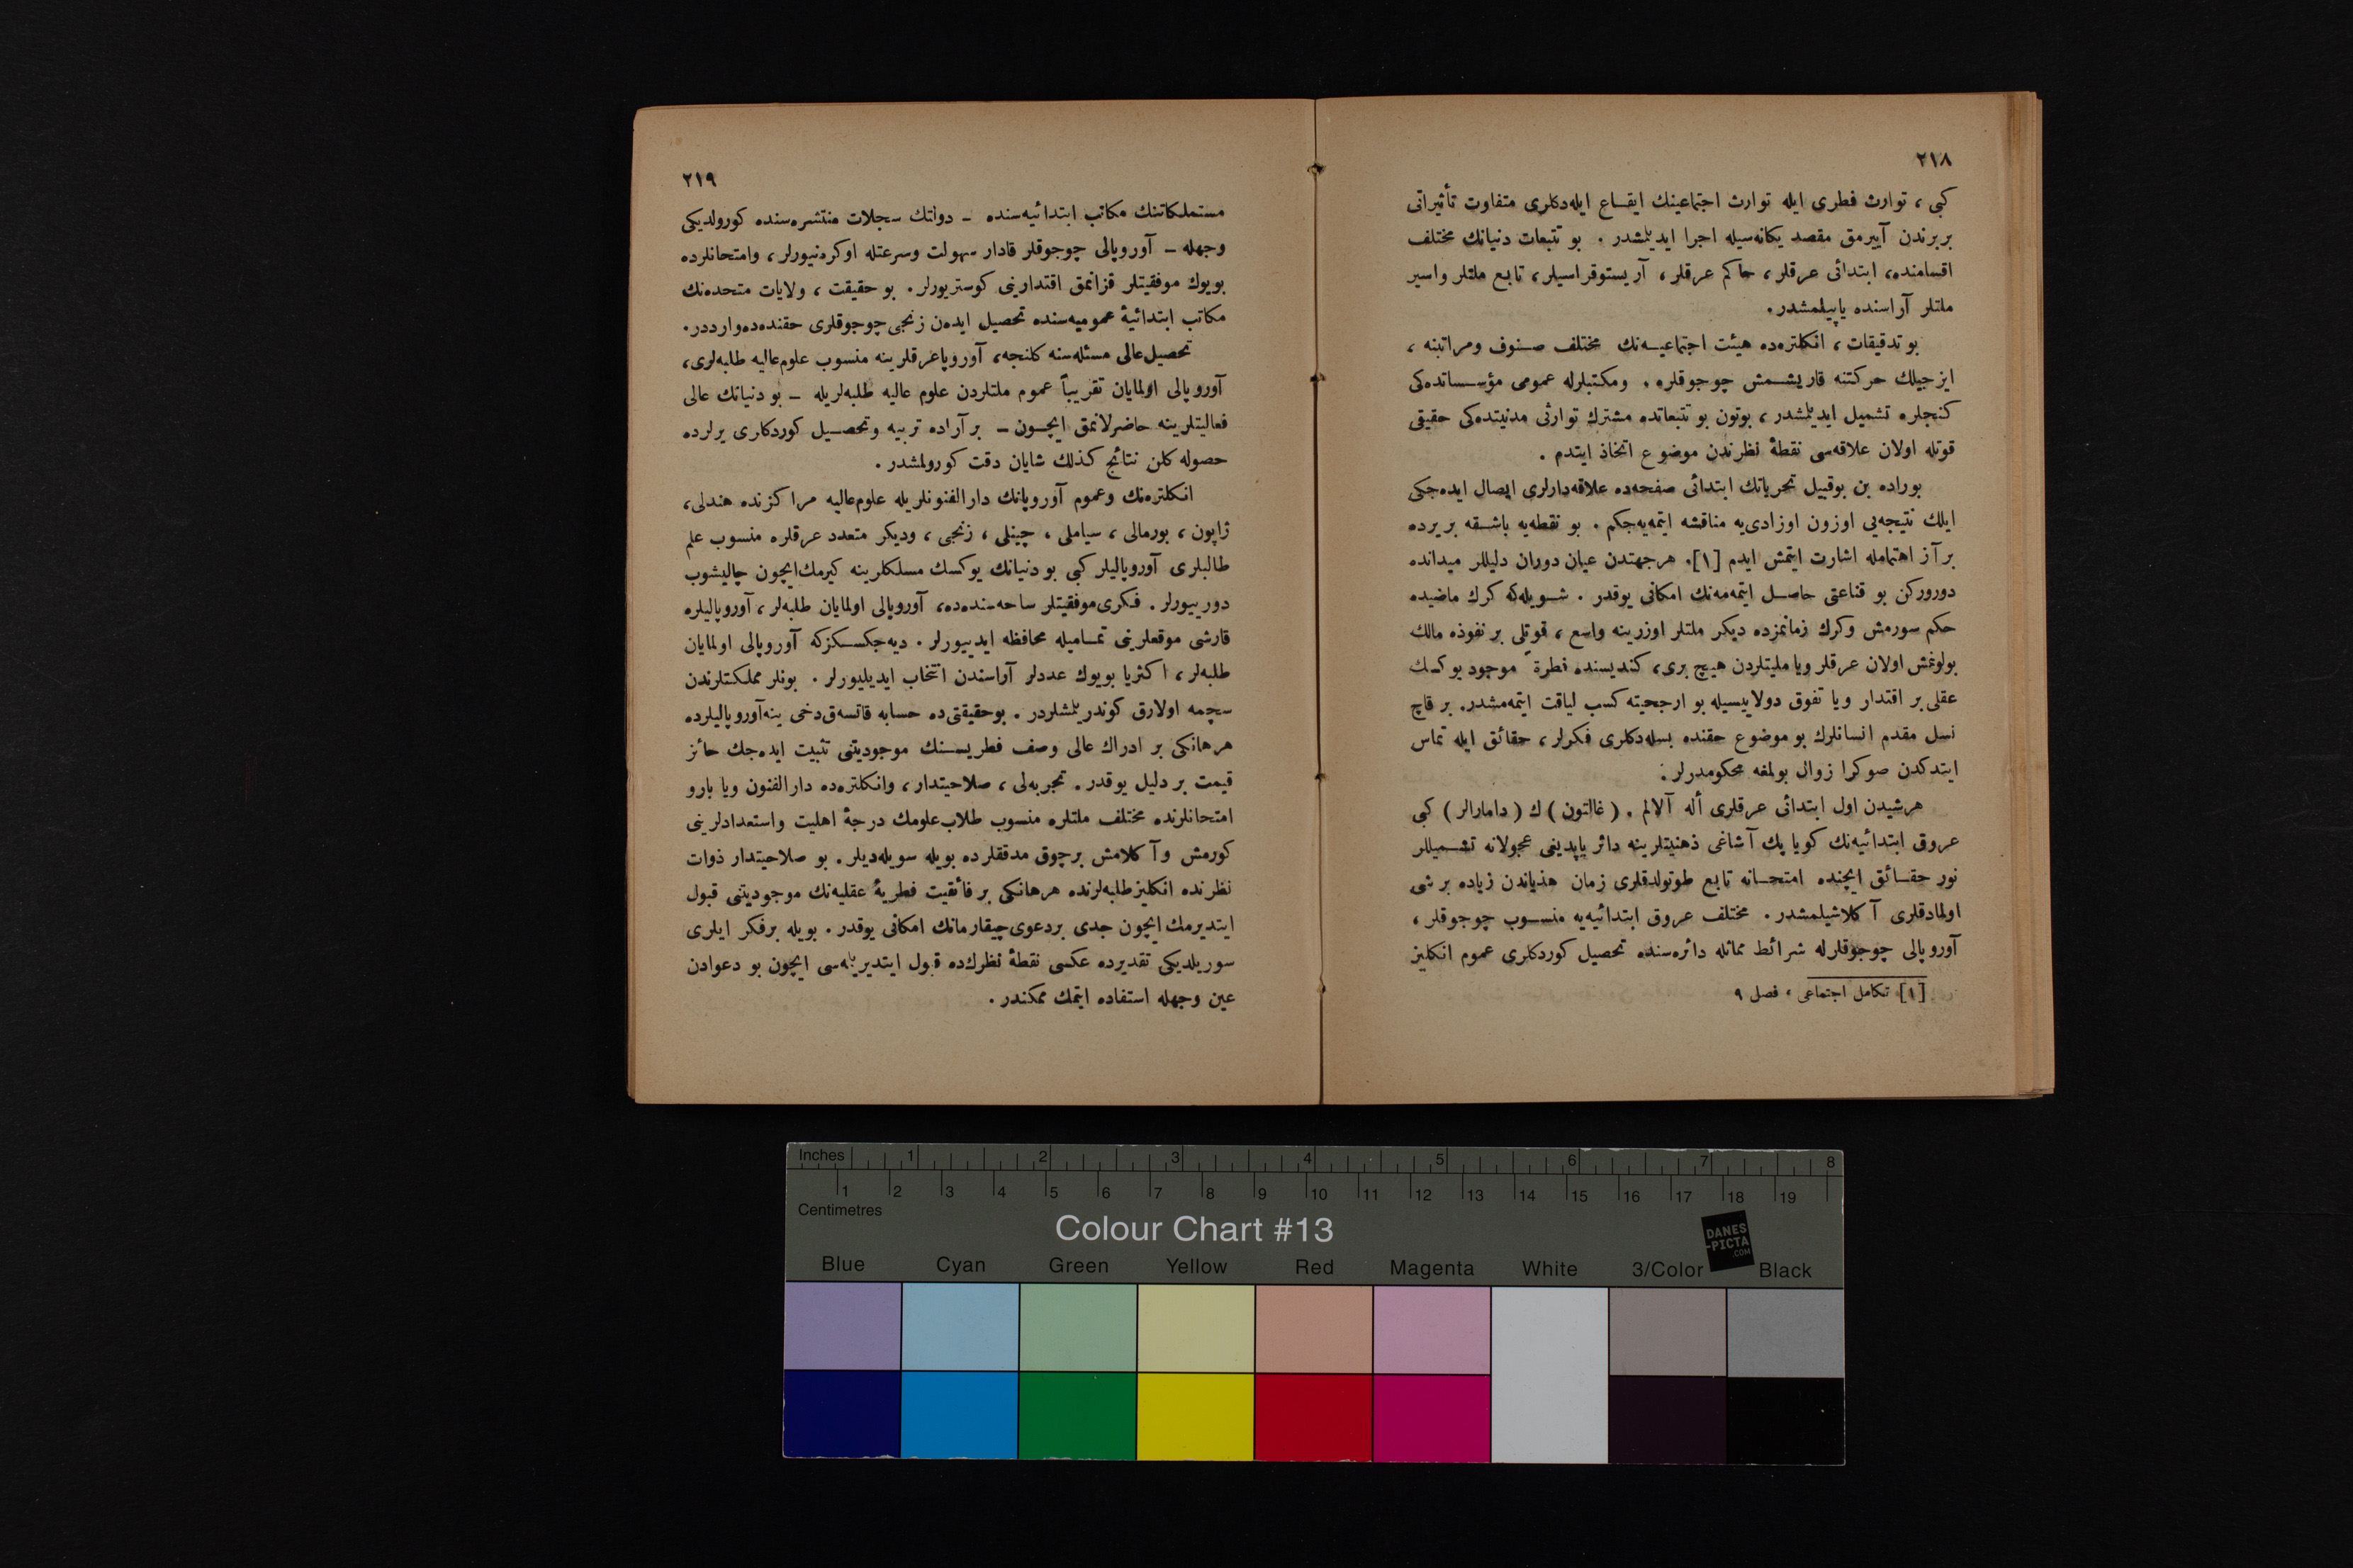 ٢١٨
كبى ، توارث فطرى ايله توارث اجتماعينك ايقـاع ايله‌دكلرى متفاوت تأثيراتى
بربرندن آييرمق مقصد يكانه‌سيله اجرا ايديلمشدر . بو تتبعات دنيانك مختلف
اقسامنده، ابتدائى عرقلر، حاكم عرقلر، آريستوقراسيلر، تابع ملتلر واسير
ملتلر آراسنده ياپيلمشدر.
بو تدقيقات ، انكلتره‌ده هيئت اجتماعيـه‌نك مختلف صـنوف ومراتبنه ،
ايزجيلك حركتنه قاريشـمش چوجوقلره، ومكتبلرله عمومى مؤسـساتده‌كى
كنجلره تشميل ايديلمشدر ، بوتون بو تتبعاتده مشترك توارثى مدنيتده‌كى حقيقى
قوتله اولان علاقه‌سى نقطۀ نظرندن موضوع اتخاذ ايتدم .
بوراده بن بوقبيل تحرياتك ابتدائى صفحه‌ده علاقه‌دارلرى ايصال ايده‌جكى
ايلك نتيجه‌يى اوزون اوزادى‌يه مناقشه ايتمه‌يه‌جكم . بو نقطه‌يه باشـقه بر يرده
بر آز اهتمامله اشارت ايتمش ايدم [١]. هرجهتدن عيان دوران دليللر ميدانده
دوروركن بو قناعتى حاصـل ايتمه‌مه‌نك امكانى يوقدر . شـويله‌كه كرك ماضيده
حكم سورمش وكرك زمانمزده ديكر ملتلر اوزرينه واسع ، قوتلى بر نفوذه مالك
بولونمش اولان عرقلر ويا مليتلردن هيچ برى، كنديسنده فطرةً موجود يوكـك
عقلى بر اقتدار ويا تفوق دولاييسيله بو ارجحيته كسب لياقت ايتمه‌مشدر. بر قاچ
نسل مقدم انسانلرك بو موضوع حقنده بسله‌دكلرى فكرلر ، حقائق ايله تماس
ايتدكدن صوكرا زوال بولمغه محكومدرلر .
هرشيدن اول ابتدائى عرقلرى أله آلالم . ( غالتون ) ك ( دامارالر ) كبى
عروق ابتدائيه‌نك كويا پك آشاغى ذهنيتلرينه دائر ياپديغى عجولانه تشـميللر
نور حقـائق ايچنده امتحـانه تابع طوتولدقلرى زمان هذياندن زياده بر شى
اولمادقلرى آكلاشيلمشدر . مختلف عروق ابتدائيه‌يه منسـوب چوجوقلر ،
آوروپالى چوجوقلرله شرائط مماثله دائره‌سنده تحصيل كوردكلرى عموم انكليز
[١] تكامل اجتماعى ، فصل ٩
٢١٩
مستملكاتنك مكاتب ابتدائيه‌سنده – دولتك سجلات منتشره‌سنده كورولديكى
وجهله – آوروپالى چوجوقلر قادار سهولت وسرعتله اوكرنيورلر، وامتحانلرده
بويوك موفقيتلر قزانمق اقتدارينى كوستريورلر. بو حقيقت ، ولايات متحده‌نك
مكاتب ابتدائيۀ عموميه‌سنده تحصيل ايده‌ن زنجى چوجوقلرى حقنده‌ده‌وارددر.
تحصيل عالى مسئله‌سنه كلنجه، آوروپاعرقلرينه منسوب علوم‌عاليه طلبه‌لرى،
آوروپالى اولمايان تقريباً عموم ملتلردن علوم عاليه طلبه‌لريله – بو دنيانك عالى
فعاليتلرينه حاضرلانمق ايچـون – بر آراده تربيه وتحصـيل كوردكلرى يرلرده
حصوله كلن نتائج كذلك شايان دقت كورولمشدر .
انكلتره‌نك وعموم آوروپانك دارالفنونلريله علوم‌عاليه مراكزنده هندلى،
ژاپون ، بورمالى ، سياملى ، چينلى ، زنجى ، وديكر متعدد عرقلره منسوب علم
طالبلرى آوروپاليلر كبى بو دنيانك يوكسك مسلكلرينه كيرمك‌ايچون چاليشوب
دورييورلر . فكرى‌موفقيتلر ساحه‌سنده‌ده، آوروپالى اولمايان طلبه‌لر، آوروپاليلره
قارشى موقعلرينى تمـاميله محافظه ايدييورلر . ديه‌جكسـكزكه آوروپالى اولمايان
طلبه‌لر ، اكثريا بويوك عددلر آراسندن انتخاب ايديليورلر . بونلر مملكتلرندن
سچمه اولارق كوندريلمشلردر . بوحقيقتى‌ده حسابه قاتسه‌ق‌دخى ينه‌آوروپاليلرده
هرهانكى بر ادراك عالى وصف فطريسـنك موجوديتنى تثبيت ايده‌جك حائز
قيمت بر دليل يوقدر . تجربه‌لى ، صلاحيتدار ، وانكلتره‌ده دارالفنون ويا بارو
امتحانلرنده مختلف ملتلره منسوب طلاب‌علومك درجۀ اهليت واستعدادلرينى
كورمش وآكلامش برچوق مدققلرده بويله سويله‌ديلر. بو صلاحيتدار ذوات
نظرنده انكليزطلبه‌لرنده هرهانكى بر فائقيت فطريۀ عقليه‌نك موجوديتنى قبول
ايتديرمك ايچون جدى بردعوى‌چيقارمانك امكانى يوقدر . بويله برفكر ايلرى
سوريلديكى تقديرده عكسى نقطۀ نظرك‌ده قبول ايتديريلمه‌سى ايچون بو دعوادن
عين وجهله استفاده ايتمك ممكندر .
Inches 1 2 3 4 5 6 7 8
1 2 3 4 5 6 7 8 9 10 11 12 13 14 15 16 17 18 19
Centimetres
Colour Chart #13
DANES
-PICTA
.COM
Blue Cyan Green Yellow Red Magenta White 3/Color Black